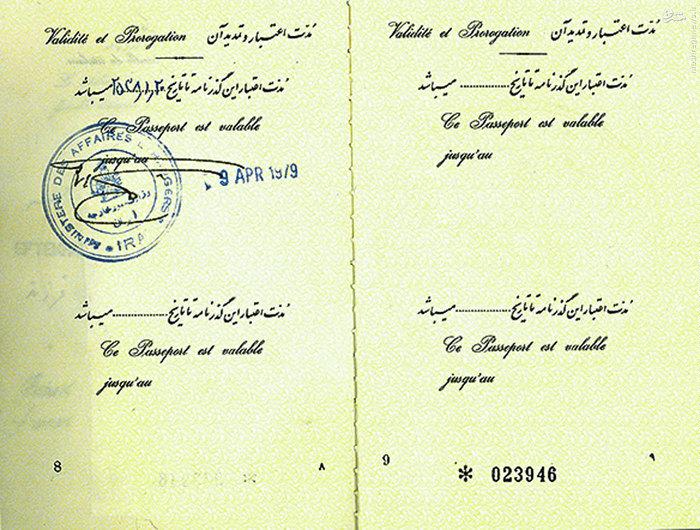 Validité et Prorogation مدت اعتبار و تمدید آن
مدت اعتبار این گذرنامه تا تاریخ ۲۵۳۸/۱/۲۰ میباشد
Ce Passeport est valable
jusqu'au
9 APR 1979
MINISTERE DES AFFAIRES
IRAN
مدت اعتبار این گذرنامه تا تاریخ .................. میباشد
Ce Passeport est valable
jusqu'au
8 ۸
Validité et Prorogation مدت اعتبار و تمدید آن
مدت اعتبار این گذرنامه تا تاریخ .................. میباشد
Ce Passeport est valable
jusqu'au
مدت اعتبار این گذرنامه تا تاریخ .................. میباشد
Ce Passeport est valable
jusqu'au
9 ۹
* 023946